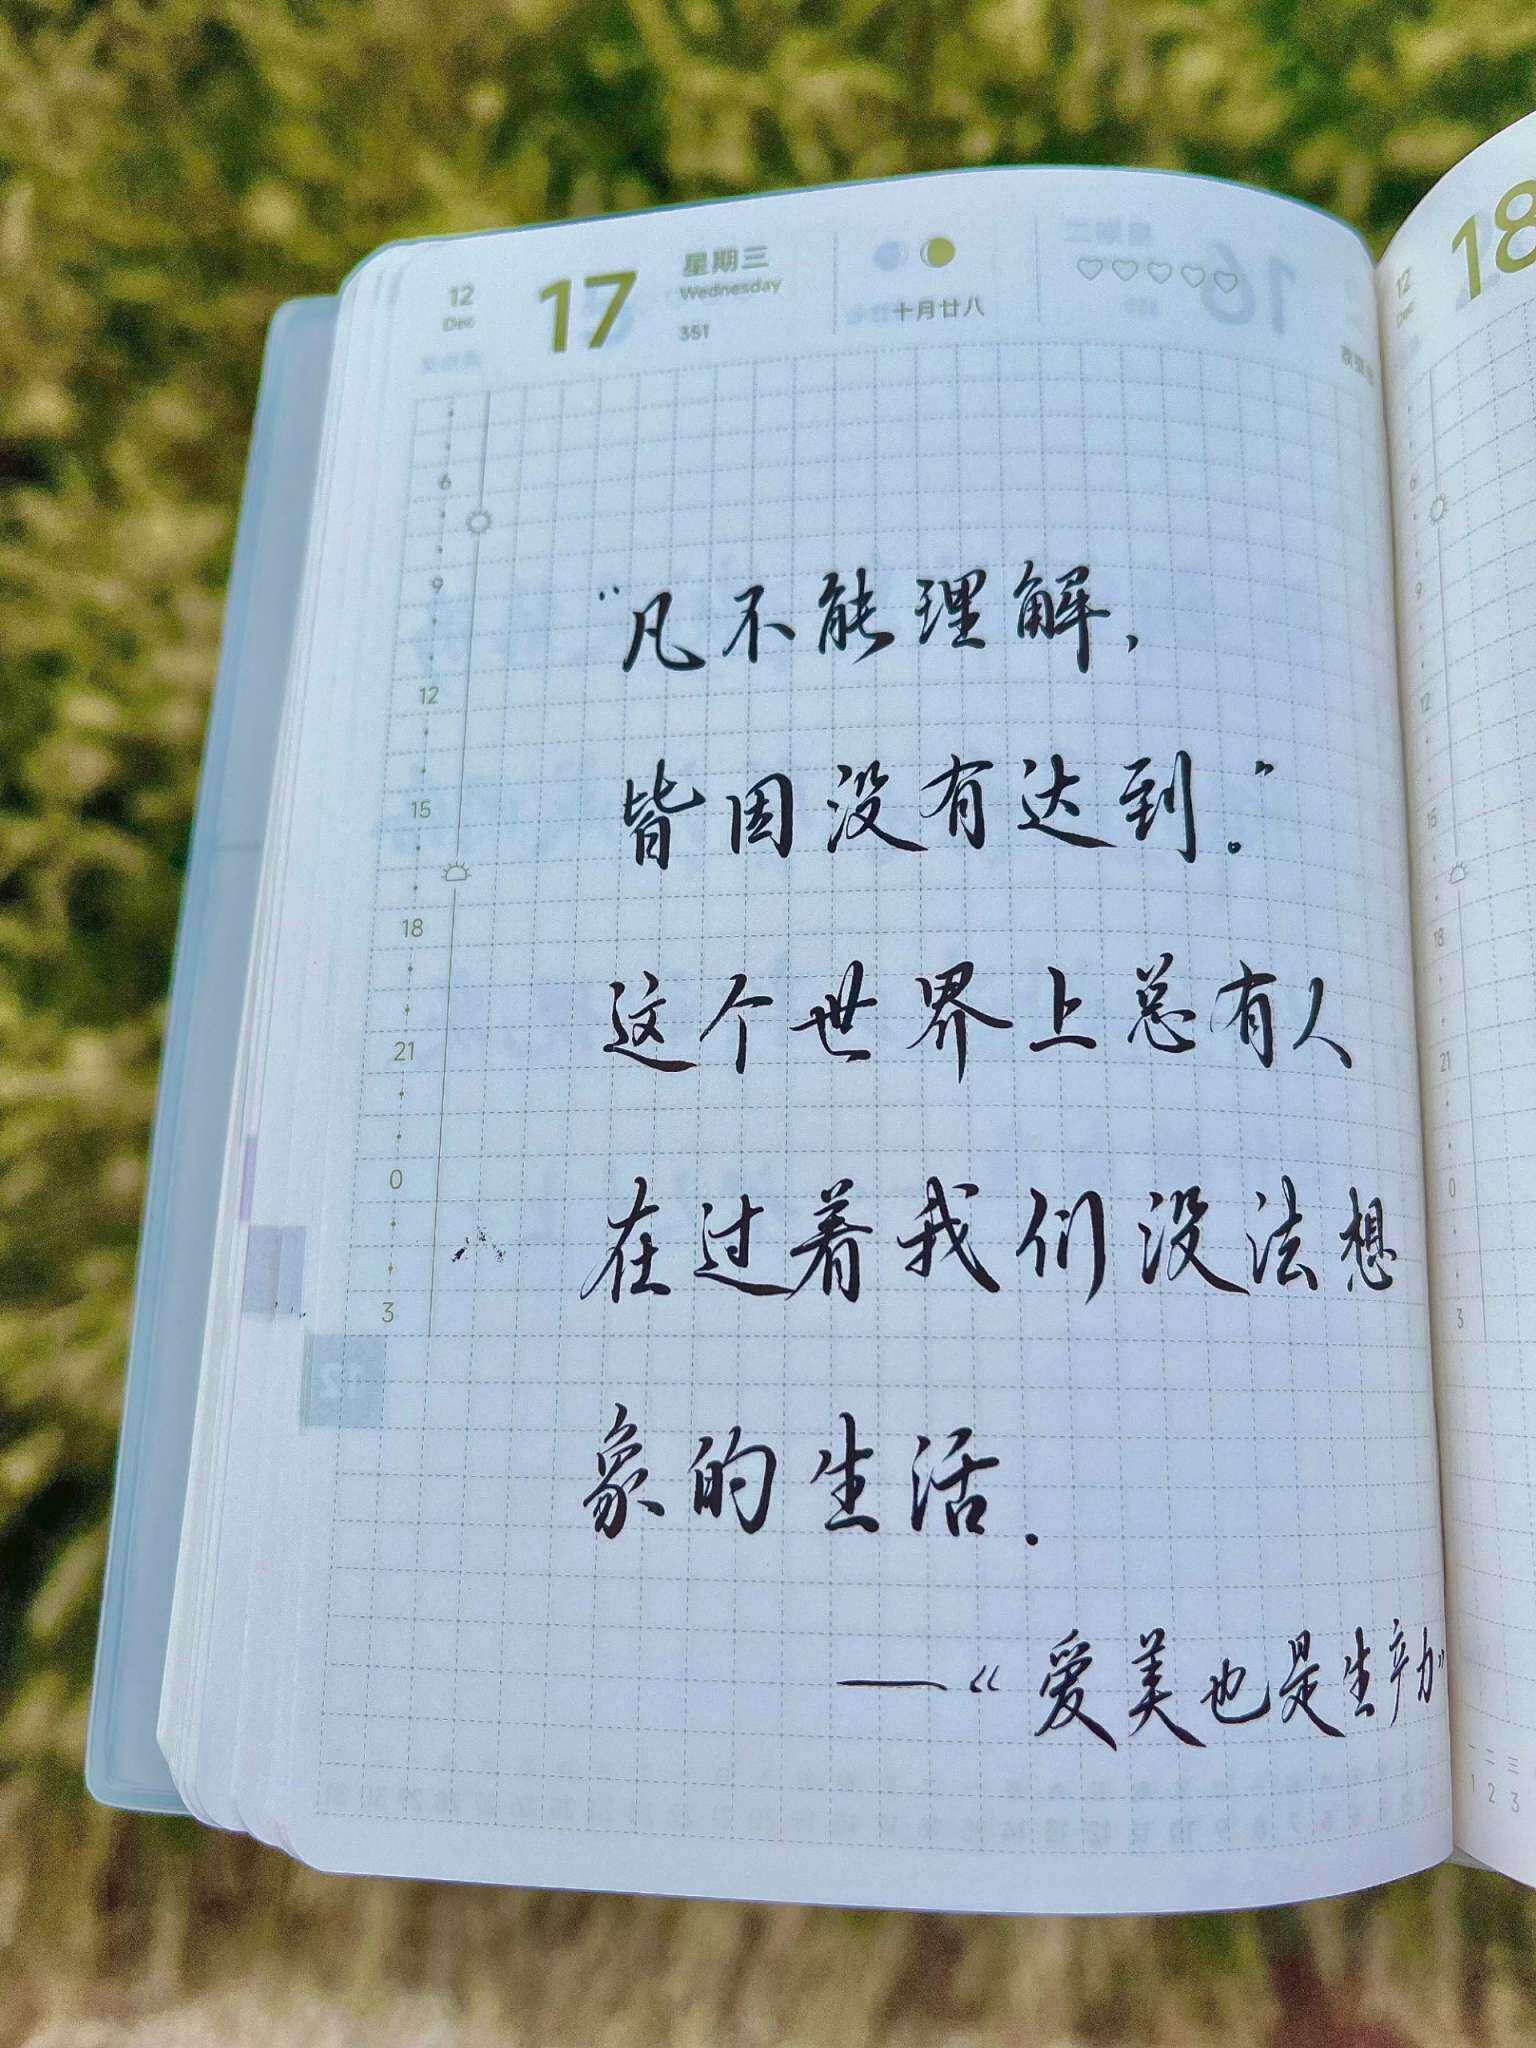 12 17 星期三
Dec Wednesday
351
十月廿八
“凡不能理解，
皆因没有达到。”
这个世界上总有人
在过着我们没法想
象的生活．
——“爱美也是生产力”
6
9
12
15
18
21
0
3
12 18
Dec
6
9
12
15
18
21
0
3
一 二 三
1 2 3